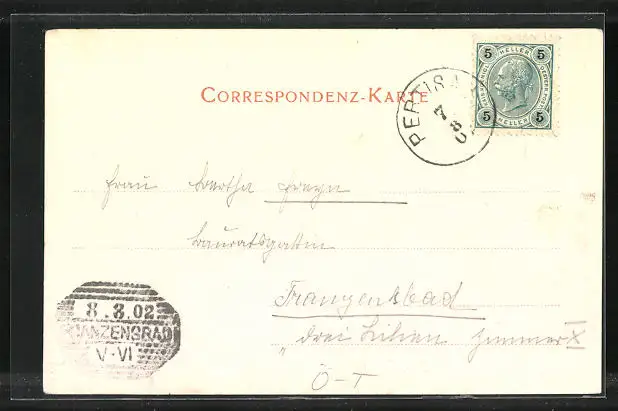 CORRESPONDENZ-KARTE
5 HELLER 5
5 HELLER 5
PERTISAU
7 8 02
Frau Bertha Freyn
Bauratsgattin
Franzensbad
"drei Lilien Zimmer X
Ö-T
8.8.02
ANZENSBAD
V·VI